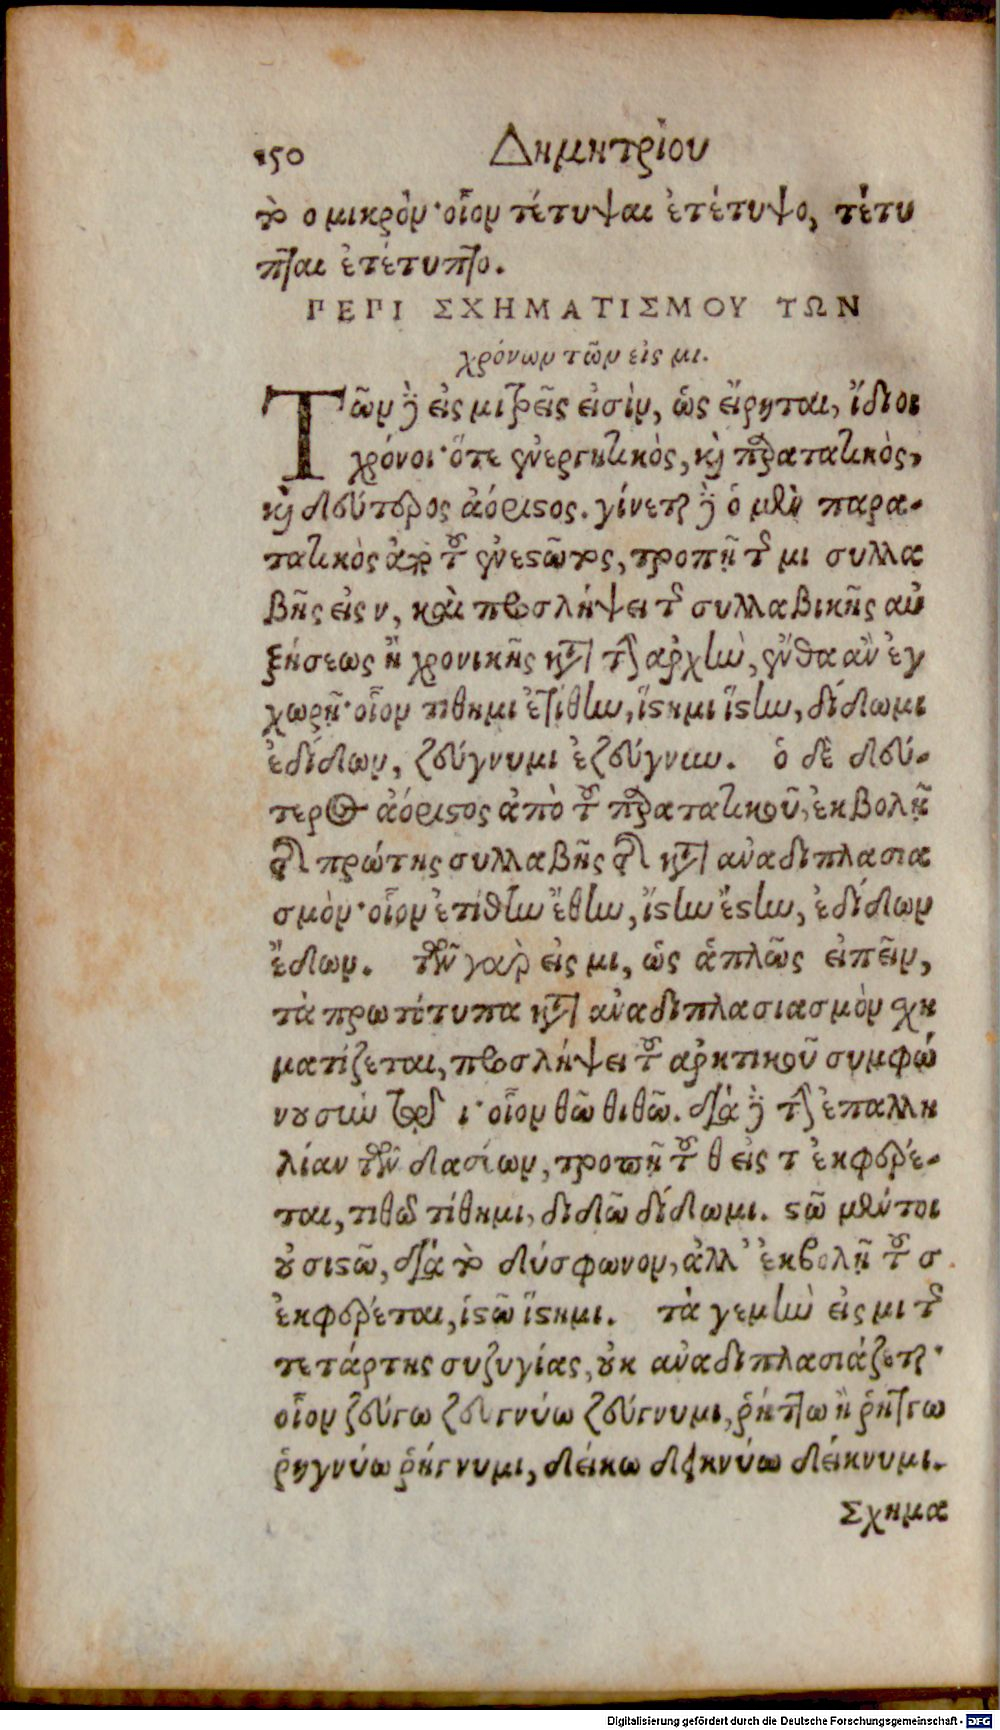 150 Δημητρίου
τὸ ο μικρόν· οἷον τέτυψαι ἐτέτυψο, τέτυ
πἶσαι ἐτέτυπἶσο.
ΠΕΡΙ ΣΧΗΜΑΤΙΣΜΟΥ ΤΩΝ
χρόνων τῶν εἰς μι.
Τῶν δὲ εἰς μι τρεῖς εἰσὶν, ὡς εἴρηται, ἴδιοι
χρόνοι· ὅτε ἐνεργητικὸς, καὶ παρατατικὸς,
καὶ δεύτερος ἀόριστος. γίνεται δὲ ὁ μὲν παρα-
τατικὸς ἀπὸ τοῦ ἐνεστῶτος, τροπῇ τῆς μι συλλα
βῆς εἰς ν, καὶ προσλήψει τῆς συλλαβικῆς αὐ
ξήσεως ἢ χρονικῆς κατὰ τὴν ἀρχὴν, ἔνθα ἂν ἐγ
χωρῇ· οἷον τίθημι ἐτίθην, ἵστημι ἵστην, δίδωμι
ἐδίδων, ζεύγνυμι ἐζεύγνυν. ὁ δὲ δεύ-
τερος ἀόριστος ἀπὸ τοῦ παρατατικοῦ, ἐκβολῇ
τῆς πρώτης συλλαβῆς τῆς κατὰ ἀναδιπλασια
σμὸν· οἷον ἐτίθην ἔθην, ἵστην ἔστην, ἐδίδων
ἔδων. τῶν γὰρ εἰς μι, ὡς ἁπλῶς εἰπεῖν,
τὰ πρωτότυπα κατὰ ἀναδιπλασιασμὸν σχη
ματίζεται, προσλήψει τοῦ ἀρκτικοῦ συμφώ
νου σὺν τῷ ι· οἷον θῶ θιθῶ. διὰ δὲ τὴν ἐπαλλη
λίαν τῶν δασέων, τροπῇ τοῦ θ εἰς τ ἐκφέρε-
ται, τιθῶ τίθημι, διδῶ δίδωμι. στῶ μέντοι
οὐ σιστῶ, διὰ τὸ δύσφωνον, ἀλλ' ἐκβολῇ τοῦ σ
ἐκφέρεται, ἱστῶ ἵστημι. τὰ γεμὴν εἰς μι τῆς
τετάρτης συζυγίας, οὐκ ἀναδιπλασιάζεται·
οἷον ζεύγω ζευγνύω ζεύγνυμι, ῥήττω ἢ ῥήσσω
ῥηγνύω ῥήγνυμι, δείκω δεικνύω δείκνυμι.
Σχημα
Digitalisierung gefördert durch die Deutsche Forschungsgemeinschaft - DFG